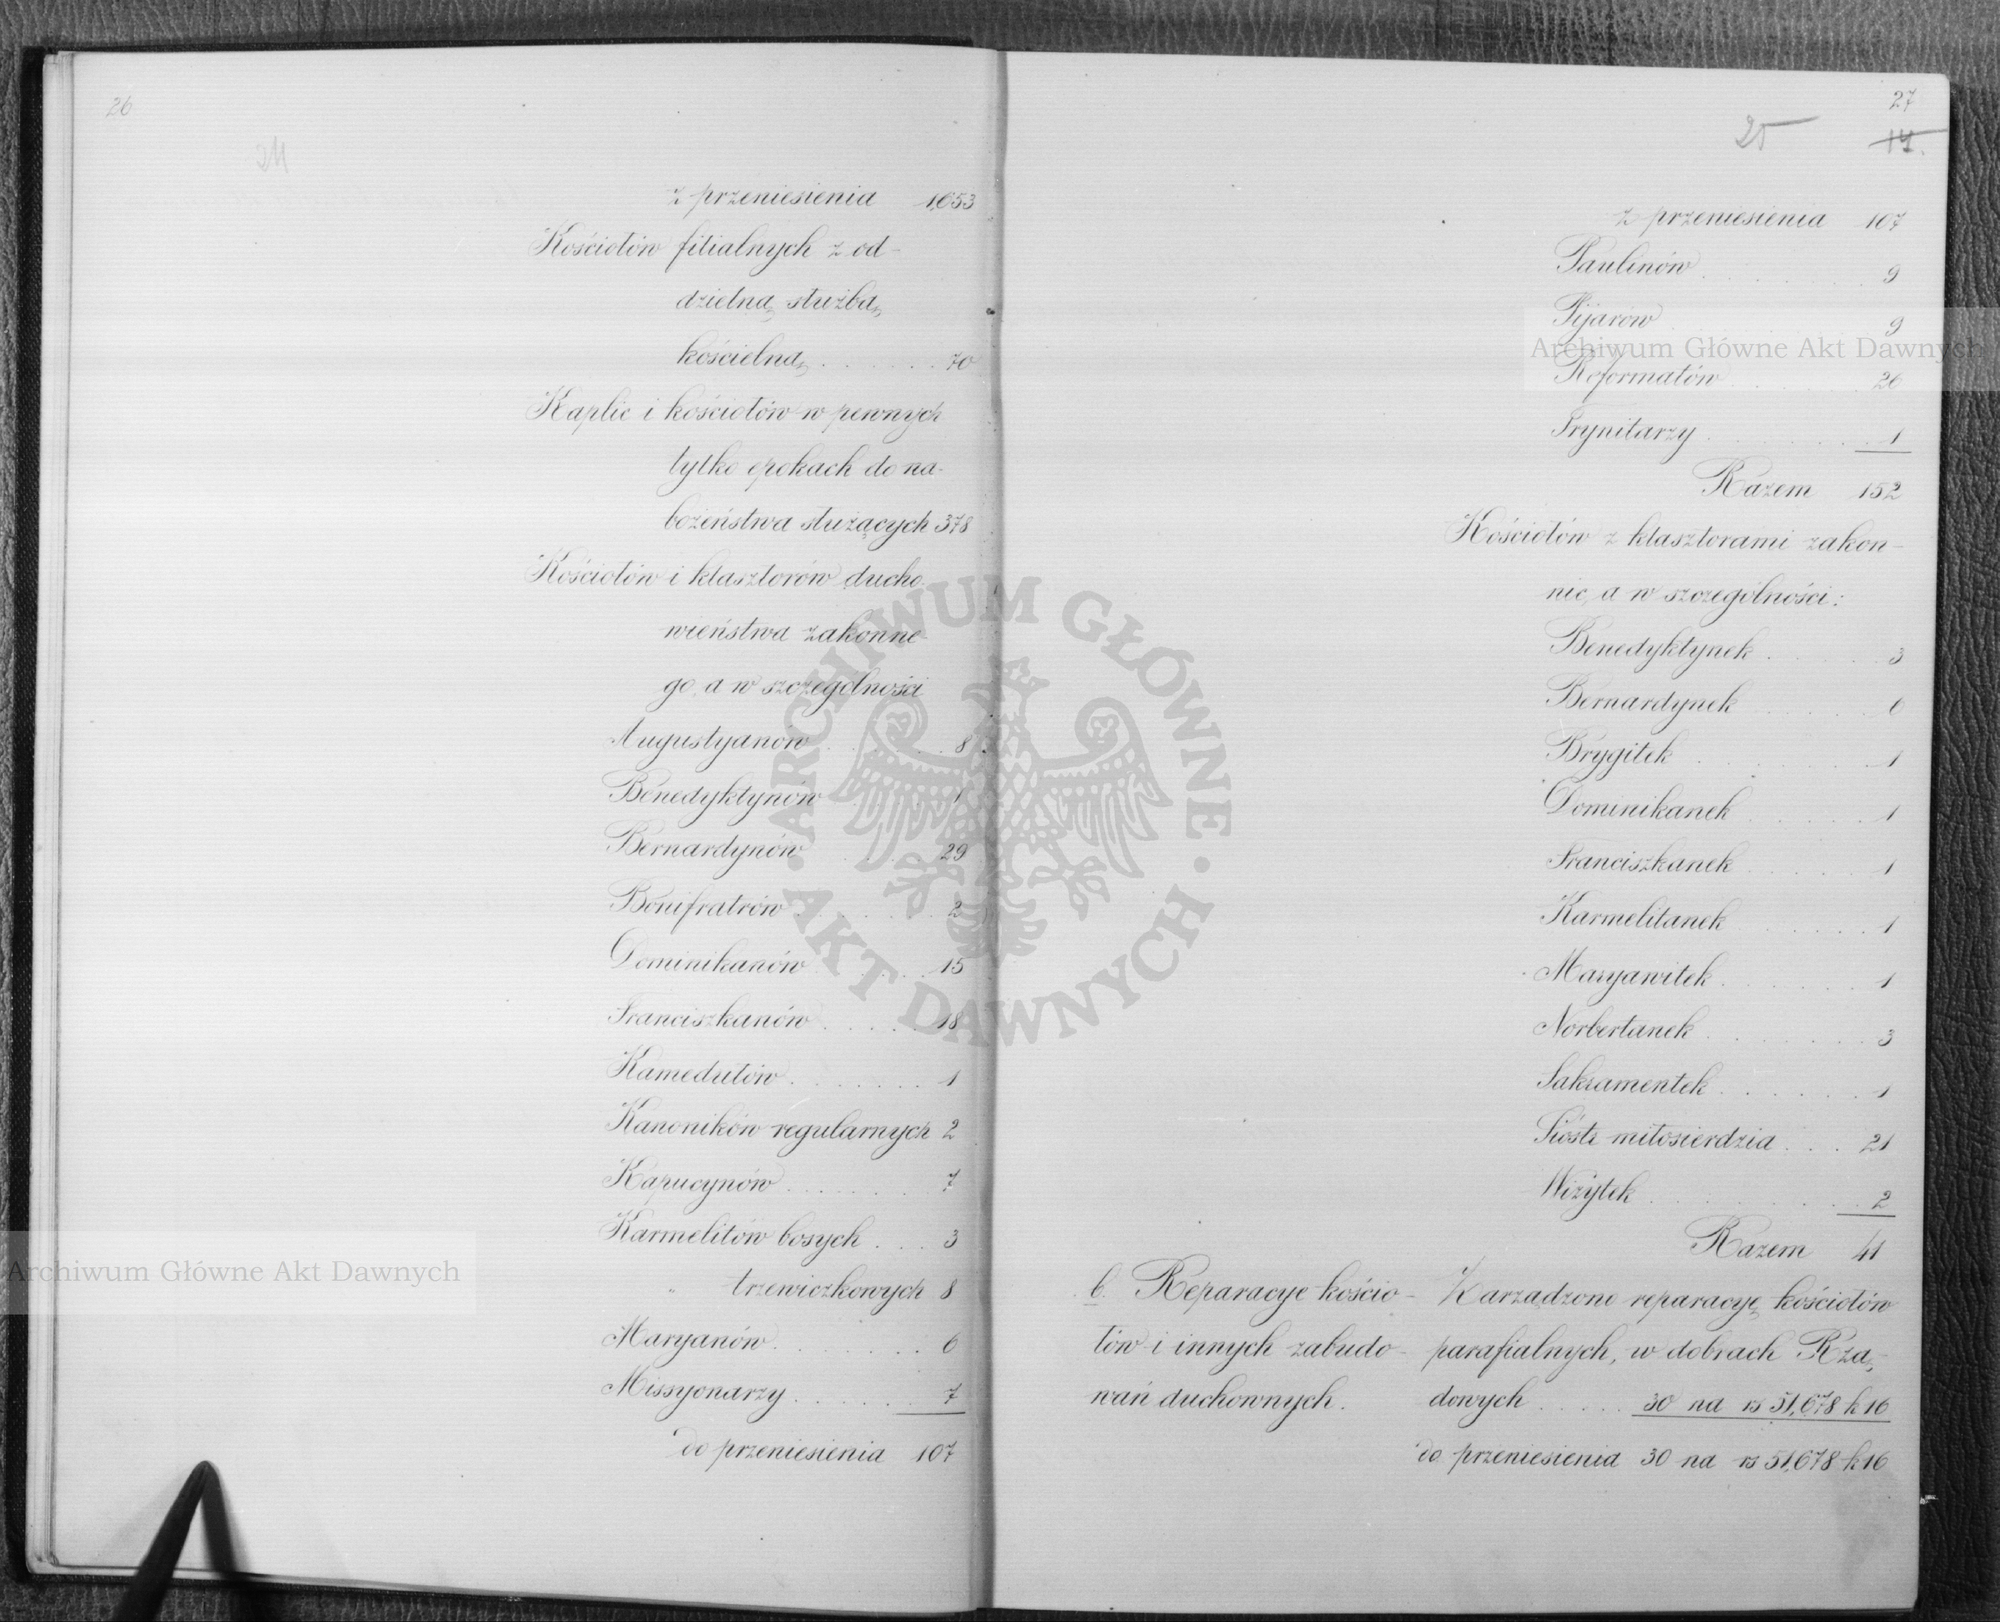 26
24
z przeniesienia 1,653
Kościołów filialnych z od-
dzielną służbą
kościelną . . . . . . 70
Kaplic i kościołów w pewnych
tylko epokach do na-
bożeństwa służących 378
Kościołów i klasztorów ducho-
wieństwa zakonne-
go, a w szczególności
Augustyanów . . . . . . 8
Benedyktynów . . . . . . 1
Bernardynów . . . . . . 29
Bonifratrów . . . . . . 2
Dominikanów . . . . . . 15
Franciszkanów . . . . . 18
Kamedułów . . . . . . . 1
Kanoników regularnych 2
Kapucynów . . . . . . . 7
Karmelitów bosych . . . 3
" trzewiczkowych 8
Maryanów . . . . . . . 6
Missyonarzy . . . . . . 7
do przeniesienia 107
27
25
14.
z przeniesienia 107
Paulinów . . . . . . . 9
Pijarów . . . . . . . 9
Reformatów . . . . . . 26
Trynitarzy . . . . . . . 1
Razem 152
Kościołów z klasztorami zakon-
nic, a w szczególności:
Benedyktynek . . . . . 3
Bernardynek . . . . . 6
Brygitek . . . . . . . 1
Dominikanek . . . . . 1
Franciszkanek . . . . . 1
Karmelitanek . . . . . 1
Maryawitek . . . . . . 1
Norbertanek . . . . . . 3
Sakramentek . . . . . . 1
Sióstr miłosierdzia . . . 21
Wizytek . . . . . . . . 2
Razem 41
b. Reparacye kościo-
łów i innych zabudo-
wań duchownych.
Zarządzono reparacyę kościołów
parafialnych, w dobrach Rzą-
dowych . . . . . 30 na rs 51,678 k 16
do przeniesienia 30 na rs 51,678 k 16
Archiwum Główne Akt Dawnych
Archiwum Główne Akt Dawnych
ARCHIWUM GŁÓWNE · AKT DAWNYCH ·